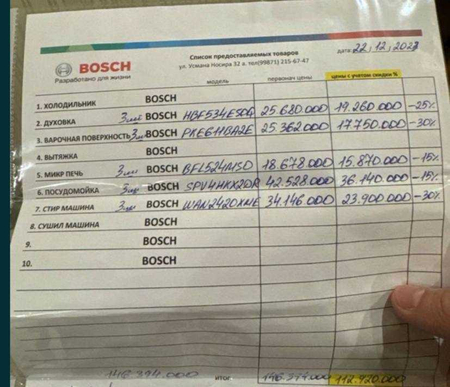 BOSCH
Разработано для жизни
Список предоставляемых товаров
ул. Усмана Носира 32 а. тел(99871) 215-67-47
дата 22, 12, 2023
модель первонач цены цены с учетом скидки %
1. ХОЛОДИЛЬНИК BOSCH
2. ДУХОВКА BOSCH HBF534ES0Q 25.680.000 19.260.000 -25%
3. ВАРОЧНАЯ ПОВЕРХНОСТЬ BOSCH PKE611BA2E 25.362.000 17.750.000 -30%
4. ВЫТЯЖКА BOSCH
5. МИКР ПЕЧЬ BOSCH BFL524MS0 18.678.000 15.870.000 -15%
6. ПОСУДОМОЙКА BOSCH SPV4HKX20R 42.528.000 36.140.000 -15%
7. СТИР МАШИНА BOSCH WAN2420XME 34.146.000 23.900.000 -30%
8. СУШИЛ МАШИНА BOSCH
9. BOSCH
10. BOSCH
146.394.000 итог 112.920.000